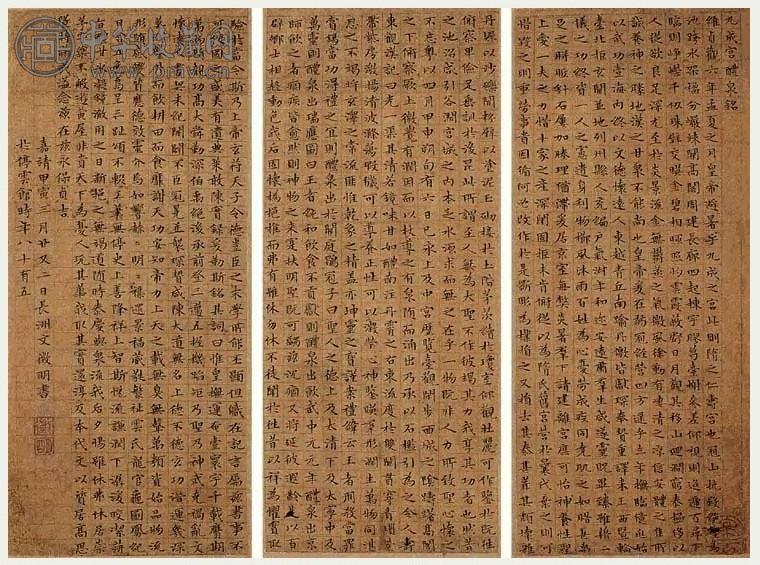 九成宮醴泉銘
維貞觀六年孟夏之月皇帝避暑乎九成之宮此則隋之仁壽宮也冠山抗殿絕壑為
池跨水架楹分巖竦闕高閣周建長廊四起棟宇膠葛臺榭參差仰視則迢遞百尋下
臨則崢嶸千仞珠璧交暎金碧相暉照灼雲霞蔽虧日月觀其移山迴澗窮泰極侈以
人從欲良足深尤至於炎景流金無鬱蒸之氣微風徐動有淒清之涼信安體之佳所
誠養神之勝地漢之甘泉不能尚也皇帝爰在弱冠經營四方逮乎立年撫臨億兆始
以武功壹海內終以文德懷遠人東越青丘南踰丹徼皆獻琛奉贄重譯來王西暨輪
臺北拒玄闕並地列州縣人充編戶氣淑年和邇安遠肅羣生咸遂靈貺畢臻雖藉二
儀之功終資一人之慮遺身利物櫛風沐雨百姓為心憂勞成疾同堯肌之如腊甚禹
足之胼胝針石屢加腠理猶滯爰居京室每弊炎暑羣下請建離宮庶可怡神養性聖
上愛一夫之力惜十家之產深閉固拒未肯俯從以為隋氏舊宮營於曩代棄之則可
惜毀之則重勞事貴因循何必改作於是斲彫為樸損之又損去其泰甚葺其頹壞雜
丹墀以沙礫間粉壁以塗泥玉砌接於土階茅茨續於瓊室仰觀壯麗可作鑒於既往
俯察卑儉足垂訓於後昆此所謂至人無為大聖不作彼竭其力我享其功者也然昔
之池沼咸引谷澗宮城之內本乏水源求而無之在乎一物既非人力所致聖心懷之
不忘粵以四月甲申朔旬有六日己亥上及中宮歷覽臺觀閑步西城之陰躊躇高閣
之下俯察厥土微覺有潤因而以杖導之有泉隨而涌出乃承以石檻引為之令人壽
東觀漢記曰光一渠其清若鏡味甘如醴南注丹霄之右東流度於雙闕貫穿青瑣縈
帶紫房激揚清波滌蕩瑕穢可以導養正性可以澂瑩心神鑒暎羣形潤生萬物同湛
恩之不竭將玄澤之常流匪惟乾象之精蓋亦坤靈之寶謹案禮緯云王者刑殺當罪
賞錫當功得禮之宜則醴泉出於闕庭鶡冠子曰聖人之德上及太清下及太寧中及
萬靈則醴泉出瑞應圖曰王者純和飲食不貢獻則醴泉出飲武中元元年醴泉出京
師飲之者痼疾皆愈然則神物之來寔扶明聖既可蠲茲沉痼又將延彼遐齡是以百
辟卿士相趨動色我后固懷撝挹推而弗有雖休勿休不徒聞於往昔以祥為懼實取
驗於當今斯乃上帝玄符天子令德豈臣之末學所能丕顯但職在記言屬茲書事不
可使國之盛美有遺典策敢陳實錄爰勒斯銘其詞曰惟皇撫運奄壹寰宇千載膺期
萬物斯覩功高大舜勤深伯禹絕後承前登三邁五握機蹈矩乃聖乃神武克禍亂文
懷遠人書契未紀開闢不臣冠冕並襲琛贄咸陳大道無名上德不德玄功潛運幾深
莫測鑿井而飲耕田而食靡謝天功安知帝力上天之載無臭無聲萬類資始品物流
形隨感變質應德效靈介焉如響赫赫明明雜遝景福葳蕤繁祉雲氏龍官龜圖鳳紀
日含五色烏呈三趾頌不輟工筆無停史上善降祥上智斯悅流謙潤下潺湲皎潔蓱
旨醴甘冰凝鏡澈用之日新挹之無竭道隨時泰慶與泉流我后夕惕雖休弗休居崇
茅宇樂不般遊黃屋非貴天下為憂人玩其華我取其實還淳反本代文以質居高思
墜持滿戒溢念茲在茲永保貞吉
嘉靖甲寅三月廿又二日長洲文徵明書
於停雲館時年八十有五
中华收藏网